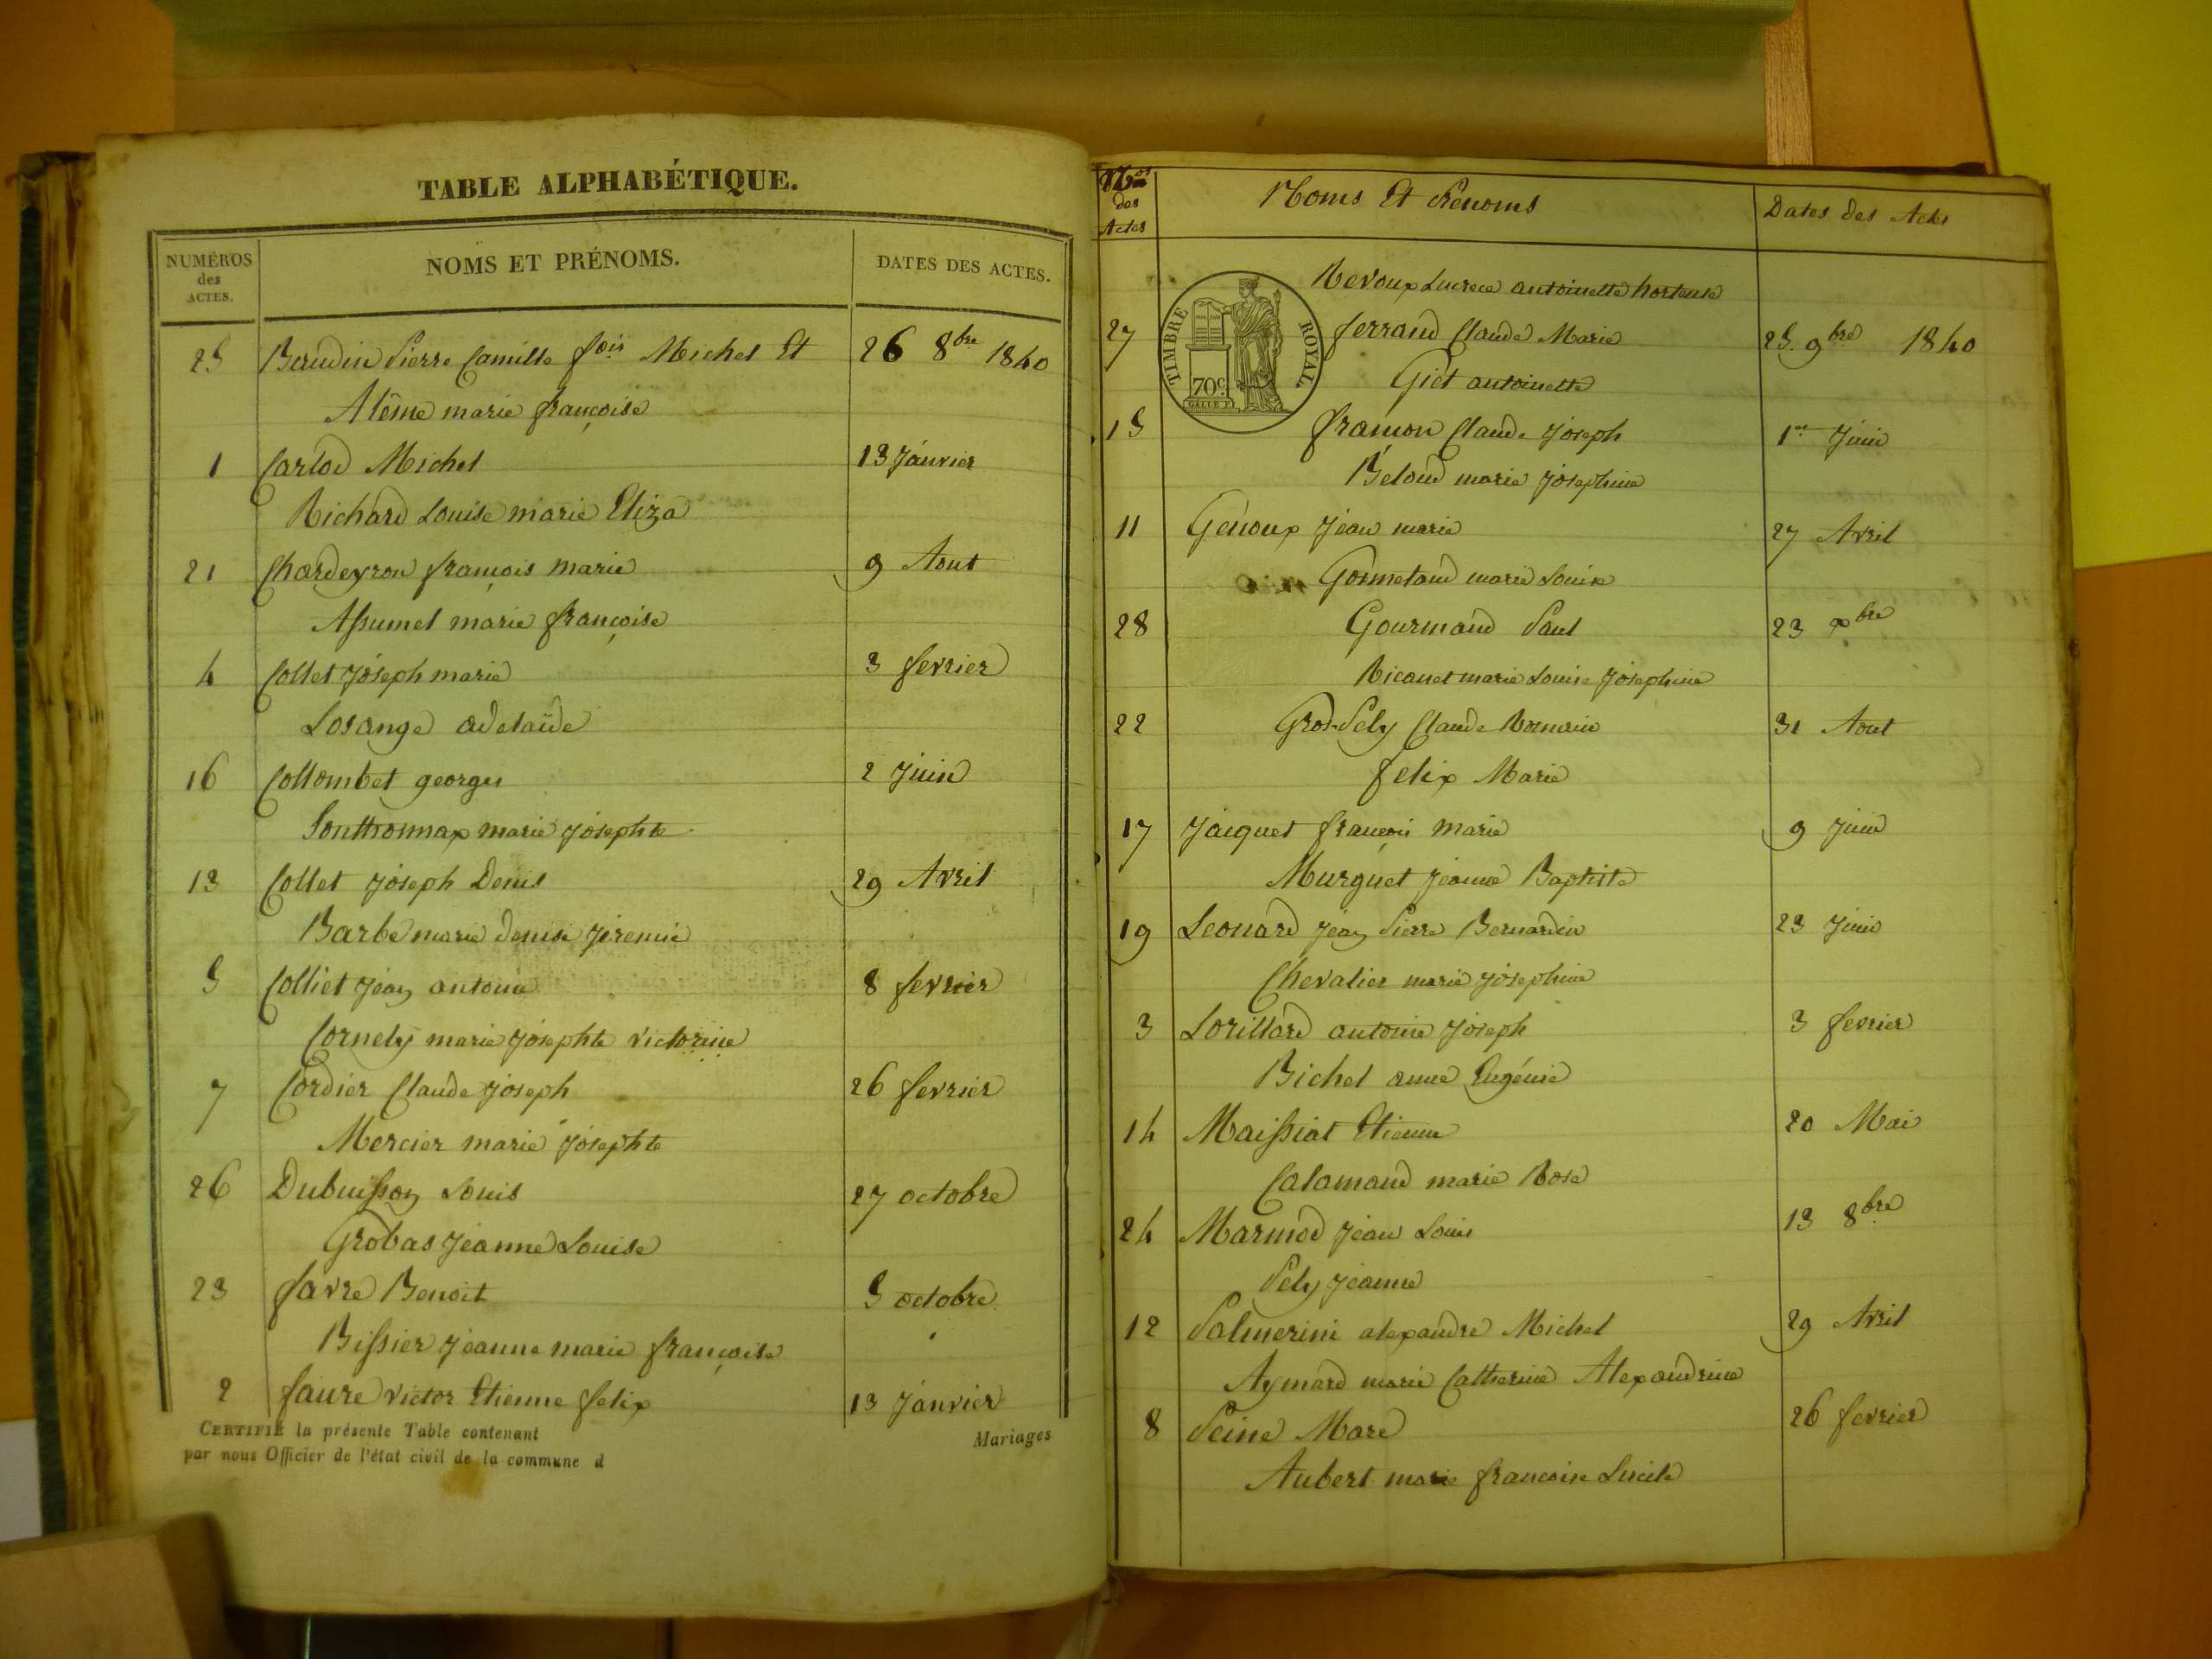 TABLE ALPHABÉTIQUE.
NUMÉROS des ACTES. NOMS ET PRÉNOMS. DATES DES ACTES.
25 Baudin Pierre Camille fois Michel Et 26 8bre 1840
Alême marie françoise
1 Carlod Michel 13 Janvier
Richard Louise marie Eliza
21 Chardeyron françois marie 9 Aout
Assumel marie françoise
4 Collet Joseph marie 3 fevrier
Losange adelaïde
16 Collombet georges 2 Juin
Sonthonnax marie josephte
13 Collet Joseph Denis 29 Avril
Barbe marie denise jeremie
5 Colliet Jean antoine 8 fevrier
Cornely marie josephte victorine
7 Cordier Claude joseph 26 fevrier
Mercier marie josephte
26 Dubuisson Louis 27 octobre
Grobas Jeanne Louise
23 favre Benoit 5 octobre
Bissier Jeanne marie françoise
2 faure victor Etienne felix 13 Janvier
CERTIFIÉ la présente Table contenant Mariages
par nous Officier de l'état civil de la commune d
Nos des Actes Noms Et Prénoms Dates des Actes
Revoux Lucrece antoinette hortense
TIMBRE ROYAL.
70c.
27 ferrand Claude Marie 25. 9bre 1840
Giet antoinette
15 françon Claude Joseph 1er Juin
Beloud marie josephine
11 Genoux Jean marie 27 Avril
Gormetand marie Louise
28 Gourmand Paul 23 xbre
Ricanet marie Louise Josephine
22 Gros-Pely Claude Romain 31 Aout
felix Marie
17 Jacquet françois marie 9 Juin
Murguet jeanne Baptiste
19 Leonard Jean Pierre Bernardin 23 Juin
Chevalier marie josephine
3 Lorillard antoine joseph 3 fevrier
Bichel anne Eugénie
14 Maissiat Etienne 20 Mai
Calamand marie Rose
24 Marmod Jean Louis 13 8bre
Pely Jeanne
12 Palmerini alexandre Michel 29 Avril
Aymard marie Catherine Alexandrine
8 Peine Marc 26 fevrier
Aubert marie francoise Lucile